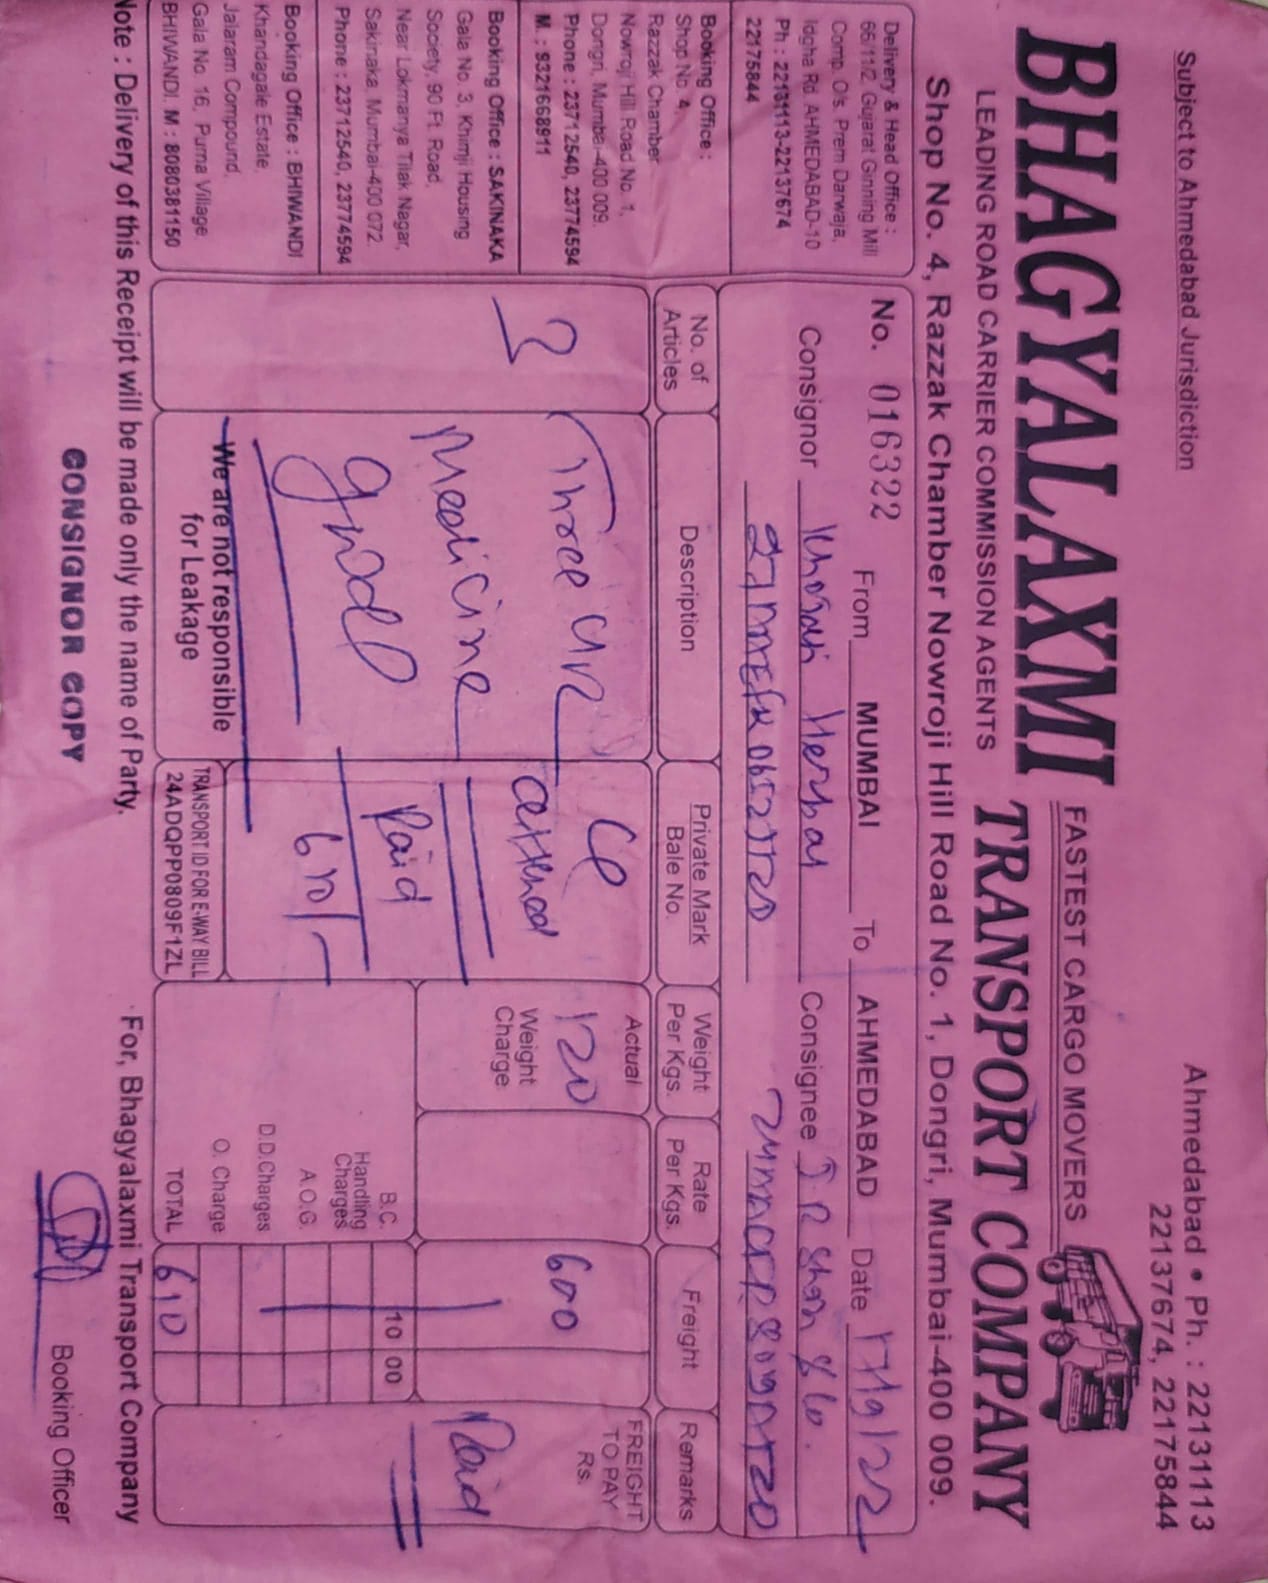 Subject to Ahmedabad Jurisdiction
Ahmedabad • Ph. : 22131113
22137674, 22175844
BHAGYALAXMI
FASTEST CARGO MOVERS
LEADING ROAD CARRIER COMMISSION AGENTS
TRANSPORT COMPANY
Shop No. 4, Razzak Chamber Nowroji Hill Road No. 1, Dongri, Mumbai-400 009.
Delivery & Head Office :
66/11/2, Gujarat Ginning Mill
Comp. O/s. Prem Darwaja,
Idgha Rd. AHMEDABAD-10
Ph : 22131113-22137674
22175844
Booking Office :
Shop No. 4,
Razzak Chamber
Nowroji Hill Road No. 1,
Dongri, Mumbai-400 009.
Phone : 23712540, 23774594
M. : 9321668911
Booking Office : SAKINAKA
Gala No. 3, Khimji Housing
Society, 90 Ft. Road,
Near Lokmanya Tilak Nagar,
Sakinaka, Mumbai-400 072.
Phone : 23712540, 23774594
Booking Office : BHIWANDI
Khandagale Estate,
Jalaram Compound,
Gala No. 16, Purna Village,
BHIWANDI. M : 8080381150
No. 016322 From MUMBAI To AHMEDABAD Date
Consignor Consignee J R Shah & Co.
No. of Articles
Description
Private Mark
Bale No.
Weight
Per Kgs.
Rate
Per Kgs.
Freight
Remarks
3
Three
medicine
Paid
610/-
Actual
120
Weight
Charge
600
FREIGHT
TO PAY
Rs.
Paid
We are not responsible
for Leakage
TRANSPORT ID FOR E-WAY BILL
24ADQPP0809F1ZL
B.C. 10 00
Handling
Charges
A.O.G.
D.D.Charges
O. Charge
TOTAL 610
Note : Delivery of this Receipt will be made only the name of Party.
For, Bhagyalaxmi Transport Company
CONSIGNOR COPY
Booking Officer